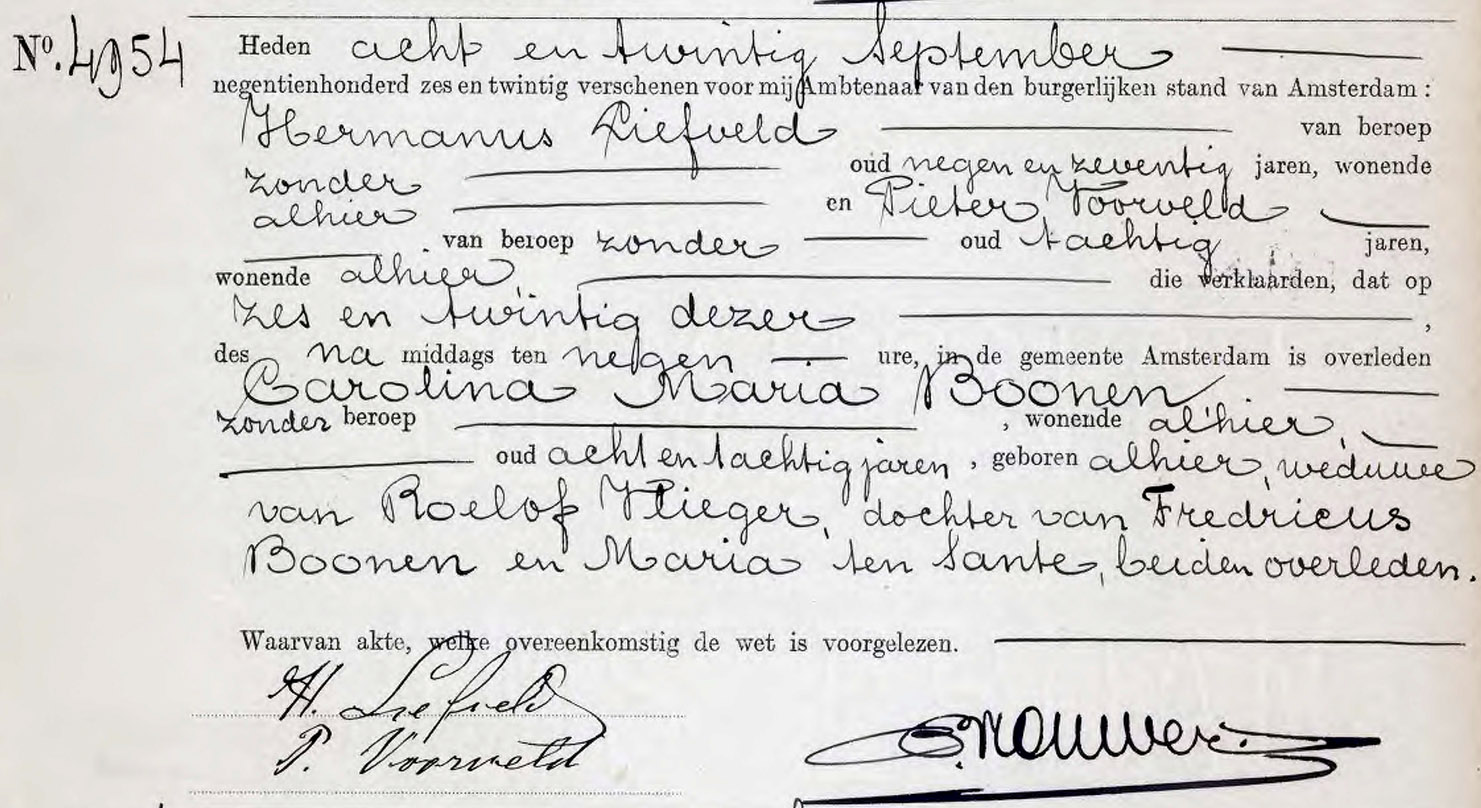 No. 4954 Heden acht en twintig September
negentienhonderd zes en twintig verschenen voor mij Ambtenaar van den burgerlijken stand van Amsterdam:
Hermanus Liefveld van beroep
zonder oud negen en zeventig jaren, wonende
alhier en Pieter Voorveld
van beroep zonder oud tachtig jaren,
wonende alhier, die verklaarden, dat op
zes en twintig dezer,
des na middags ten negen ure, in de gemeente Amsterdam is overleden
Carolina Maria Boonen
zonder beroep, wonende alhier,
oud acht en tachtig jaren, geboren alhier, weduwe
van Roelof Vlieger, dochter van Fredricus
Boonen en Maria ten Sante, beiden overleden.
Waarvan akte, welke overeenkomstig de wet is voorgelezen.
H. Liefveld
P. Voorveld